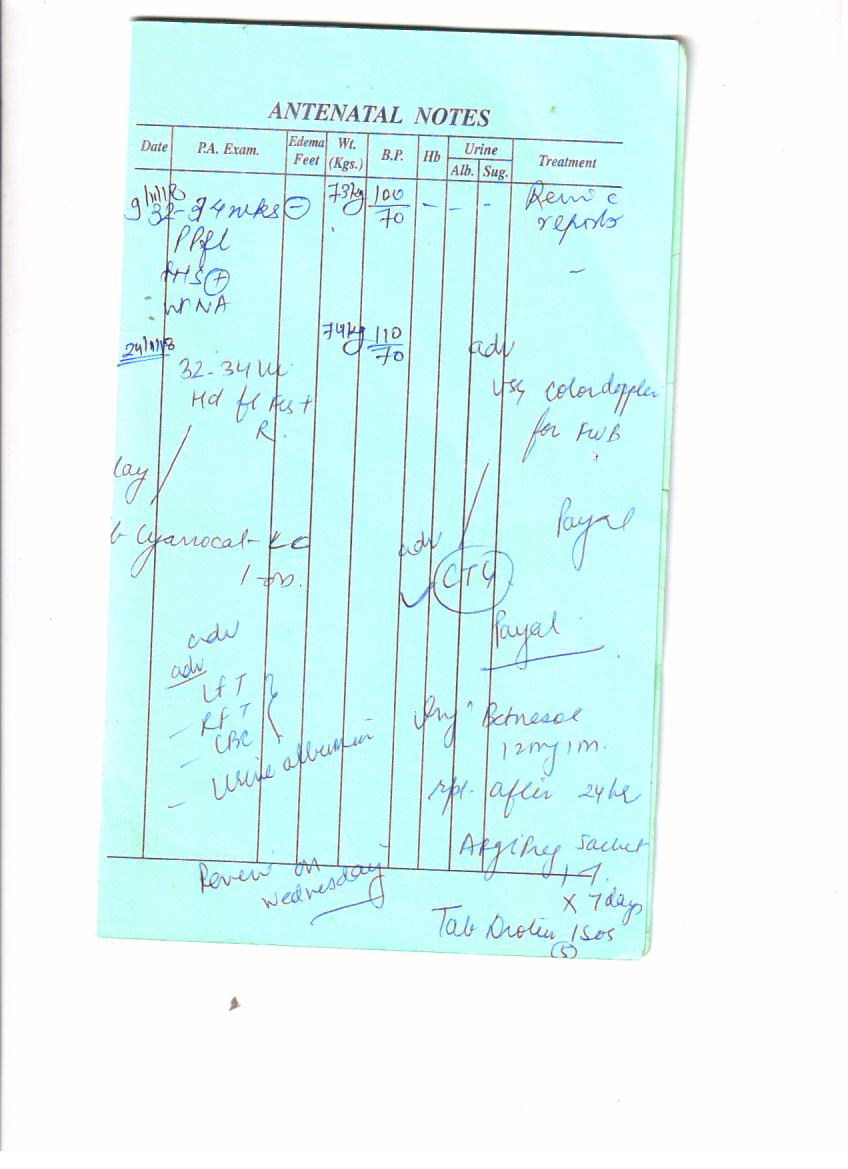 ANTENATAL NOTES
Date P.A. Exam. Edema Feet Wt. (Kgs.) B.P. Hb Urine Alb. Sug. Treatment
9/11/18 32-34 wks (-) 73kg 100/70 - - - Review c
reports
PP fl
FHS (+)
Ut NA
-
24/11/18 74kg 110/70 adv
32-34 wk
Hd fl FHS +
R.
USG color doppler
for FWB
Payal
Cyanocal-
1-OD.
adv
CTG
Payal
adv
adv
LFT
- RFT
- CBC
- Urine albumin
Inj Betnesol
12mg im.
rpt- after 24 hr
ArgiPreg Sachet
X 7 days
Review on
Wednesday
Tab Drotin 1 SOS
(5)